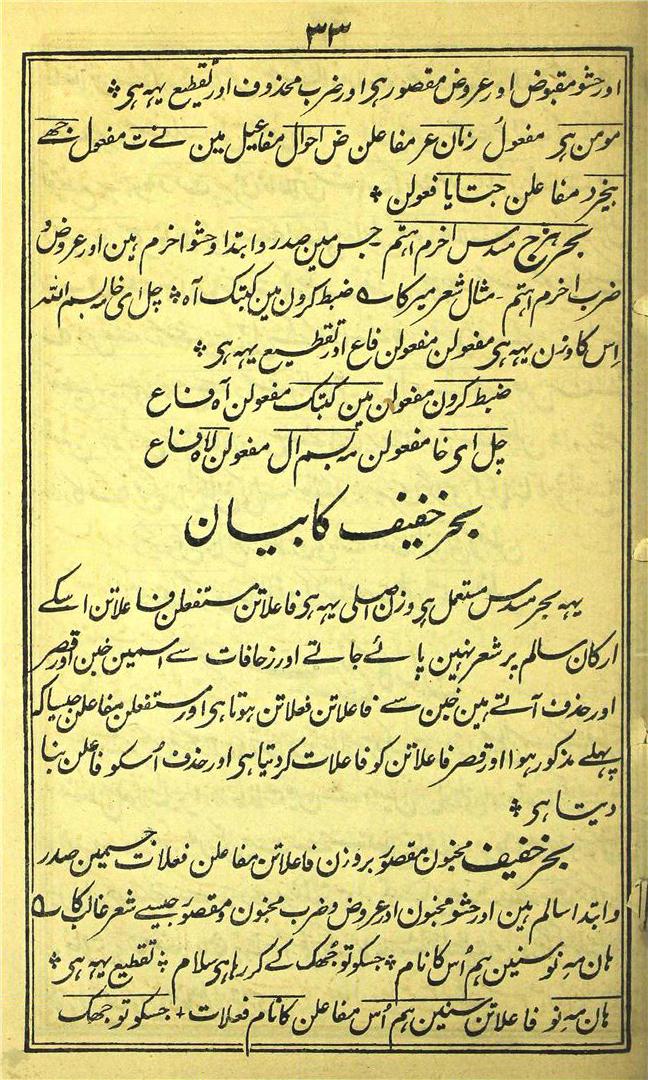 ۳۳
اور حشو مقبوض اور عروض مقصور ہی اور ضرب محذوف اور تقطیع یہہ ہی ٭
مومن ہی مفعولُ زنان عر مفاعلن ض احوال مفاعیل مین نے ت مفعول جھے
بیخرد مفاعلن جتایا فعولن ٭
بحر ہزج مسدس اخرم اہتم جس مین صدر و ابتدا و حشو اخرم ہین اور عروض و
ضرب اخرم اہتم - مثال شعر میر کا ؎ ضبط کرون مین کبتک آہ ٭ چل ای خامہ بسم اللہ
اِس کا وزن یہہ ہی مفعولن مفعولن فاع اور تقطیع یہہ ہی ٭
ضبط کرون مفعولن مین کبتک مفعولن آہ فاع
چل ای خا مفعولن مہ بسم ال مفعولن لاہ فاع
بحر خفیف کا بیان
یہہ بحر مسدس مستعمل ہی وزن اصلی یہہ ہی فاعلاتن مستفعلن فاعلاتن اسکے
ارکان سالم پر شعر نہین پائے جاتے اور زحافات سے اسمین خبن اور قصر
اور حذف آتے ہین خبن سے فاعلاتن فعلاتن ہوتا ہی اور مستفعلن مفاعلن جیسا کہ
پہلے مذکور ہوا اور قصر فاعلاتن کو فاعلات کر دیتا ہی اور حذف اُسکو فاعلن بنا
دیتا ہی ٭
بحر خفیف مخبون مقصور بروزن فاعلاتن مفاعلن فعلات جسمین صدر
و ابتدا سالم ہین اور حشو مخبون اور عروض و ضرب مخبون و مقصور جیسے شعر غالب کا ؎
ہان مہِ نو سنین ہم اُس کا نام ٭ جسکو تو جھک کے کر رہا ہی سلام ٭ تقطیع یہہ ہی ٭
ہان مہِ نو فاعلاتن سنین ہم اُس مفاعلن کا نام فعلات + جسکو تو جھک